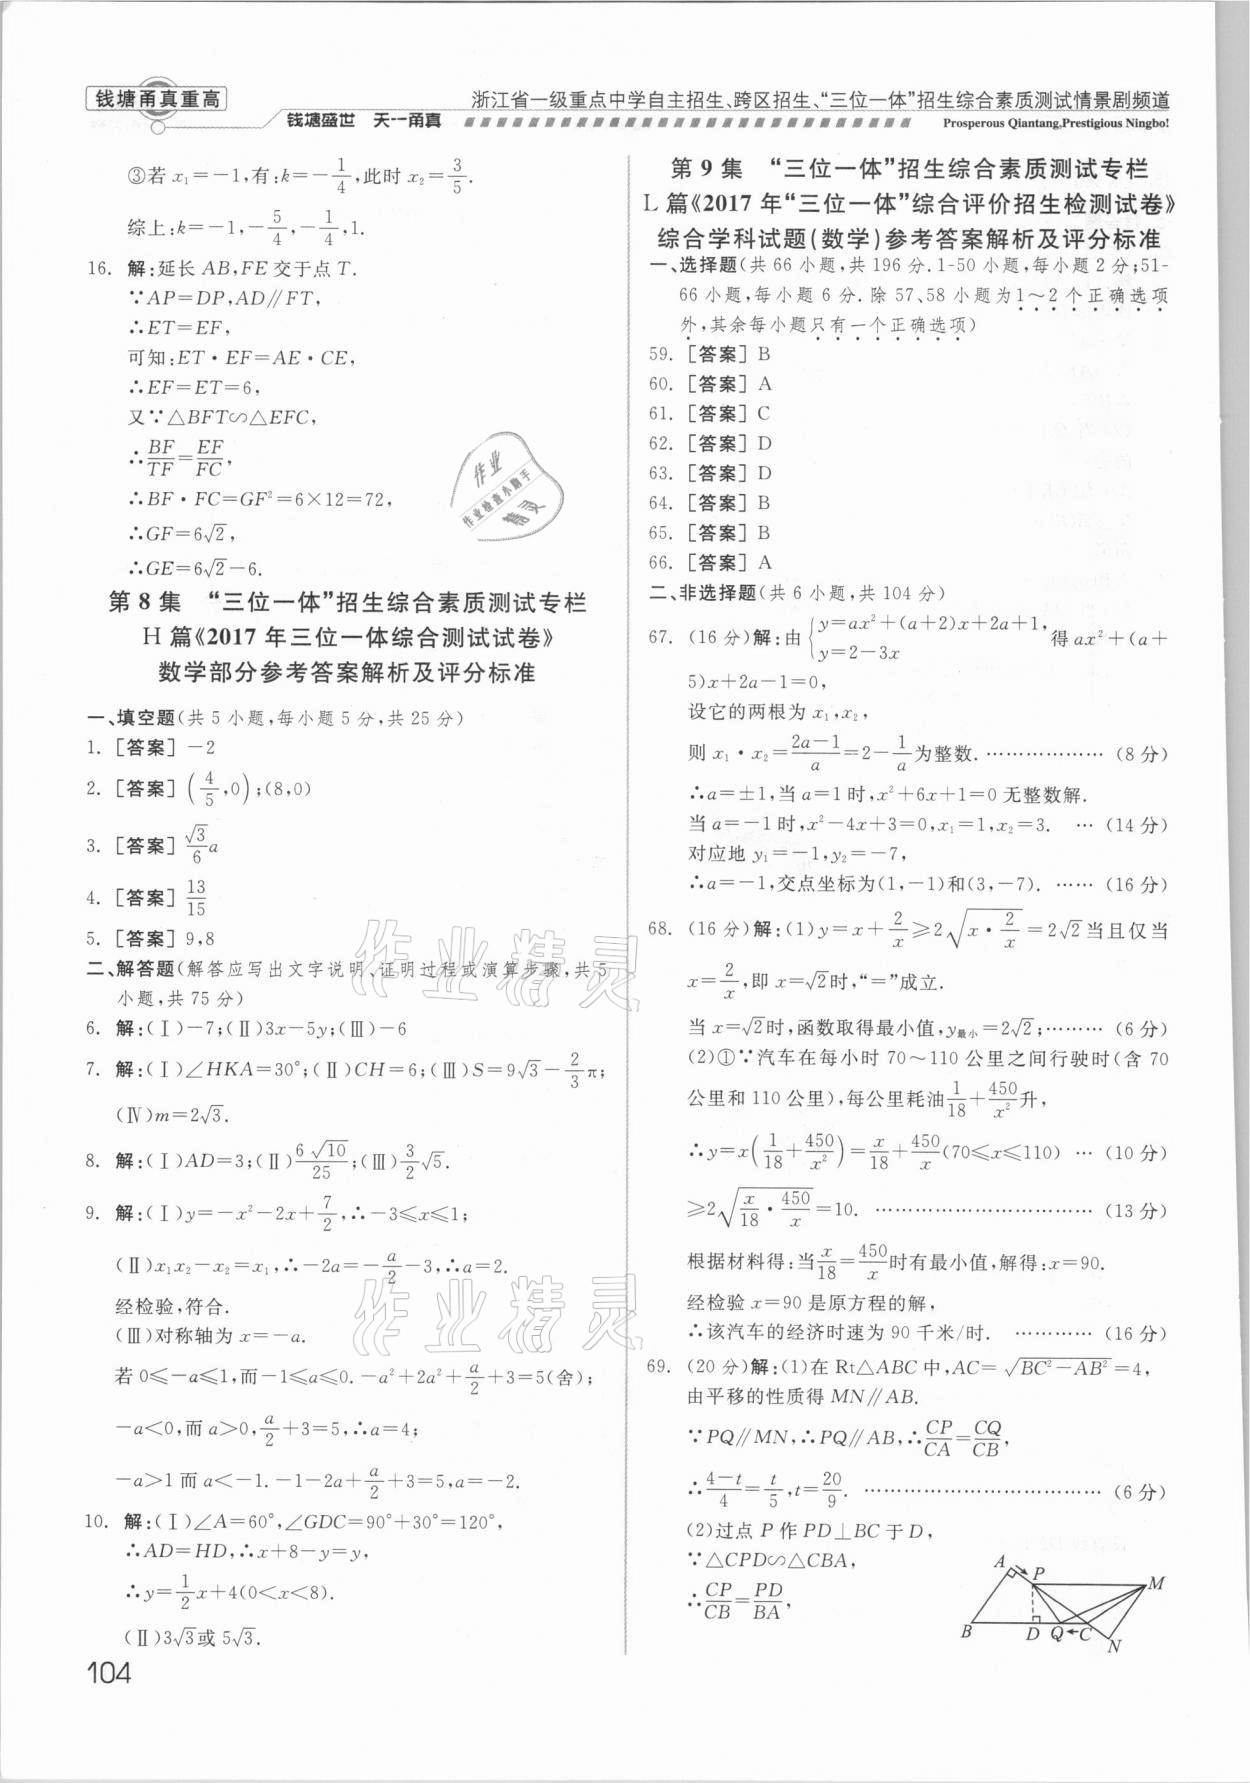 钱塘甬真重高
浙江省一级重点中学自主招生、跨区招生、“三位一体”招生综合素质测试情景剧频道
钱塘盛世 天一甬真
Prosperous Qiantang,Prestigious Ningbo!
③若 x₁=-1,有:k=-1/4,此时 x₂=3/5.
综上:k=-1,-5/4,-1/4,1.
16. 解:延长 AB,FE 交于点 T.
∵AP=DP,AD∥FT,
∴ET=EF,
可知:ET·EF=AE·CE,
∴EF=ET=6,
又∵△BFT∽△EFC,
∴BF/TF=EF/FC,
∴BF·FC=GF²=6×12=72,
∴GF=6√2,
∴GE=6√2-6.
第 8 集 “三位一体”招生综合素质测试专栏
H 篇《2017 年三位一体综合测试试卷》
数学部分参考答案解析及评分标准
一、填空题(共 5 小题,每小题 5 分,共 25 分)
1. [答案]-2
2. [答案](4/5,0);(8,0)
3. [答案]√3/6 a
4. [答案]13/15
5. [答案]9,8
二、解答题(解答应写出文字说明、证明过程或演算步骤,共 5
小题,共 75 分)
6. 解:(Ⅰ)-7;(Ⅱ)3x-5y;(Ⅲ)-6
7. 解:(Ⅰ)∠HKA=30°;(Ⅱ)CH=6;(Ⅲ)S=9√3-2/3 π;
(Ⅳ)m=2√3.
8. 解:(Ⅰ)AD=3;(Ⅱ)6√10/25;(Ⅲ)3/2 √5.
9. 解:(Ⅰ)y=-x²-2x+7/2,∴-3≤x≤1;
(Ⅱ)x₁x₂-x₂=x₁,∴-2a=-a/2-3,∴a=2.
经检验,符合.
(Ⅲ)对称轴为 x=-a.
若 0≤-a≤1,而-1≤a≤0.-a²+2a²+a/2+3=5(舍);
-a<0,而 a>0,a/2+3=5,∴a=4;
-a>1 而 a<-1.-1-2a+a/2+3=5,a=-2.
10. 解:(Ⅰ)∠A=60°,∠GDC=90°+30°=120°,
∴AD=HD,∴x+8-y=y,
∴y=1/2 x+4(0<x<8).
(Ⅱ)3√3或 5√3.
104
第 9 集 “三位一体”招生综合素质测试专栏
L 篇《2017 年“三位一体”综合评价招生检测试卷》
综合学科试题(数学)参考答案解析及评分标准
一、选择题(共 66 小题,共 196 分.1-50 小题,每小题 2 分;51-
66 小题,每小题 6 分.除 57、58 小题为 1～2 个正确选项
外,其余每小题只有一个正确选项)
59. [答案]B
60. [答案]A
61. [答案]C
62. [答案]D
63. [答案]D
64. [答案]B
65. [答案]B
66. [答案]A
二、非选择题(共 6 小题,共 104 分)
67. (16 分)解:由{y=ax²+(a+2)x+2a+1, y=2-3x 得 ax²+(a+
5)x+2a-1=0,
设它的两根为 x₁,x₂,
则 x₁·x₂=(2a-1)/a=2-1/a 为整数. ……………… (8 分)
∴a=±1,当 a=1 时,x²+6x+1=0 无整数解.
当 a=-1 时,x²-4x+3=0,x₁=1,x₂=3. … (14 分)
对应地 y₁=-1,y₂=-7,
∴a=-1,交点坐标为(1,-1)和(3,-7). …… (16 分)
68. (16 分)解:(1)y=x+2/x≥2√(x·2/x)=2√2当且仅当
x=2/x,即 x=√2时,“=”成立.
当 x=√2时,函数取得最小值,y最小=2√2;……… (6 分)
(2)①∵汽车在每小时 70～110 公里之间行驶时(含 70
公里和 110 公里),每公里耗油1/18+450/x²升,
∴y=x(1/18+450/x²)=x/18+450/x(70≤x≤110) … (10 分)
≥2√(x/18·450/x)=10. …………………………… (13 分)
根据材料得:当x/18=450/x时有最小值,解得:x=90.
经检验 x=90 是原方程的解,
∴该汽车的经济时速为 90 千米/时. ………… (16 分)
69. (20 分)解:(1)在 Rt△ABC 中,AC=√(BC²-AB²)=4,
由平移的性质得 MN∥AB.
∵PQ∥MN,∴PQ∥AB,∴CP/CA=CQ/CB,
∴(4-t)/4=t/5,t=20/9. …………………………… (6 分)
(2)过点 P 作 PD⊥BC 于 D,
∵△CPD∽△CBA,
∴CP/CB=PD/BA,
A P M
B D Q C N
作业
作业检查小助手
精灵
作业精灵
作业精灵